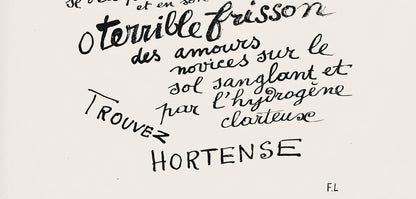 et en son
O terrible frisson
des amours
novices sur le
sol sanglant et
par l'hydrogène
clarteuse
TROUVEZ
HORTENSE
F.L